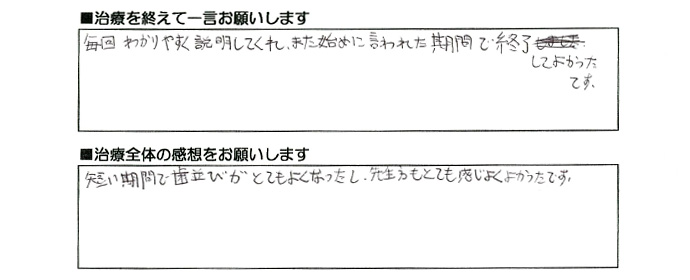 ■治療を終えて一言お願いします
毎回わかりやすく説明してくれ、また始めに言われた期間で終了
してよかった
です。
■治療全体の感想をお願いします
短い期間で歯並びがとてもよくなったし、先生方もとても感じよくよかったです。